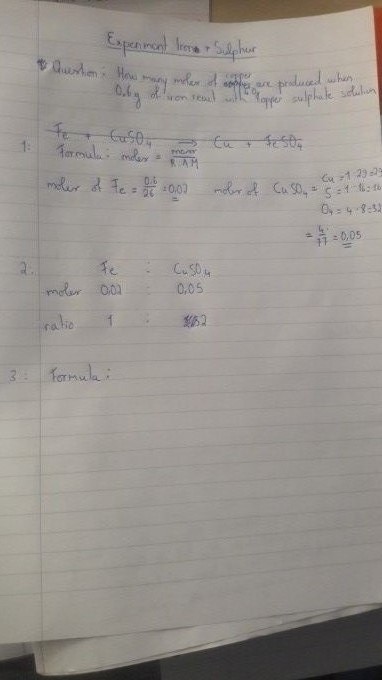 Experiment Iron + Sulphur
Question: How many moles of copper are produced when
0.6g of iron react with copper sulphate solution
1: Fe + CuSO4 → Cu + FeSO4
Formula: moles = mass / R.A.M
moles of Fe = 0.6/26 = 0.02 moles of CuSO4 = Cu = 1·29=29
S = 1·16=16
O4 = 4·8=32
= 4/77 = 0.05
2. Fe : CuSO4
moles 0.02 : 0.05
ratio 1 : 2
3: Formula: